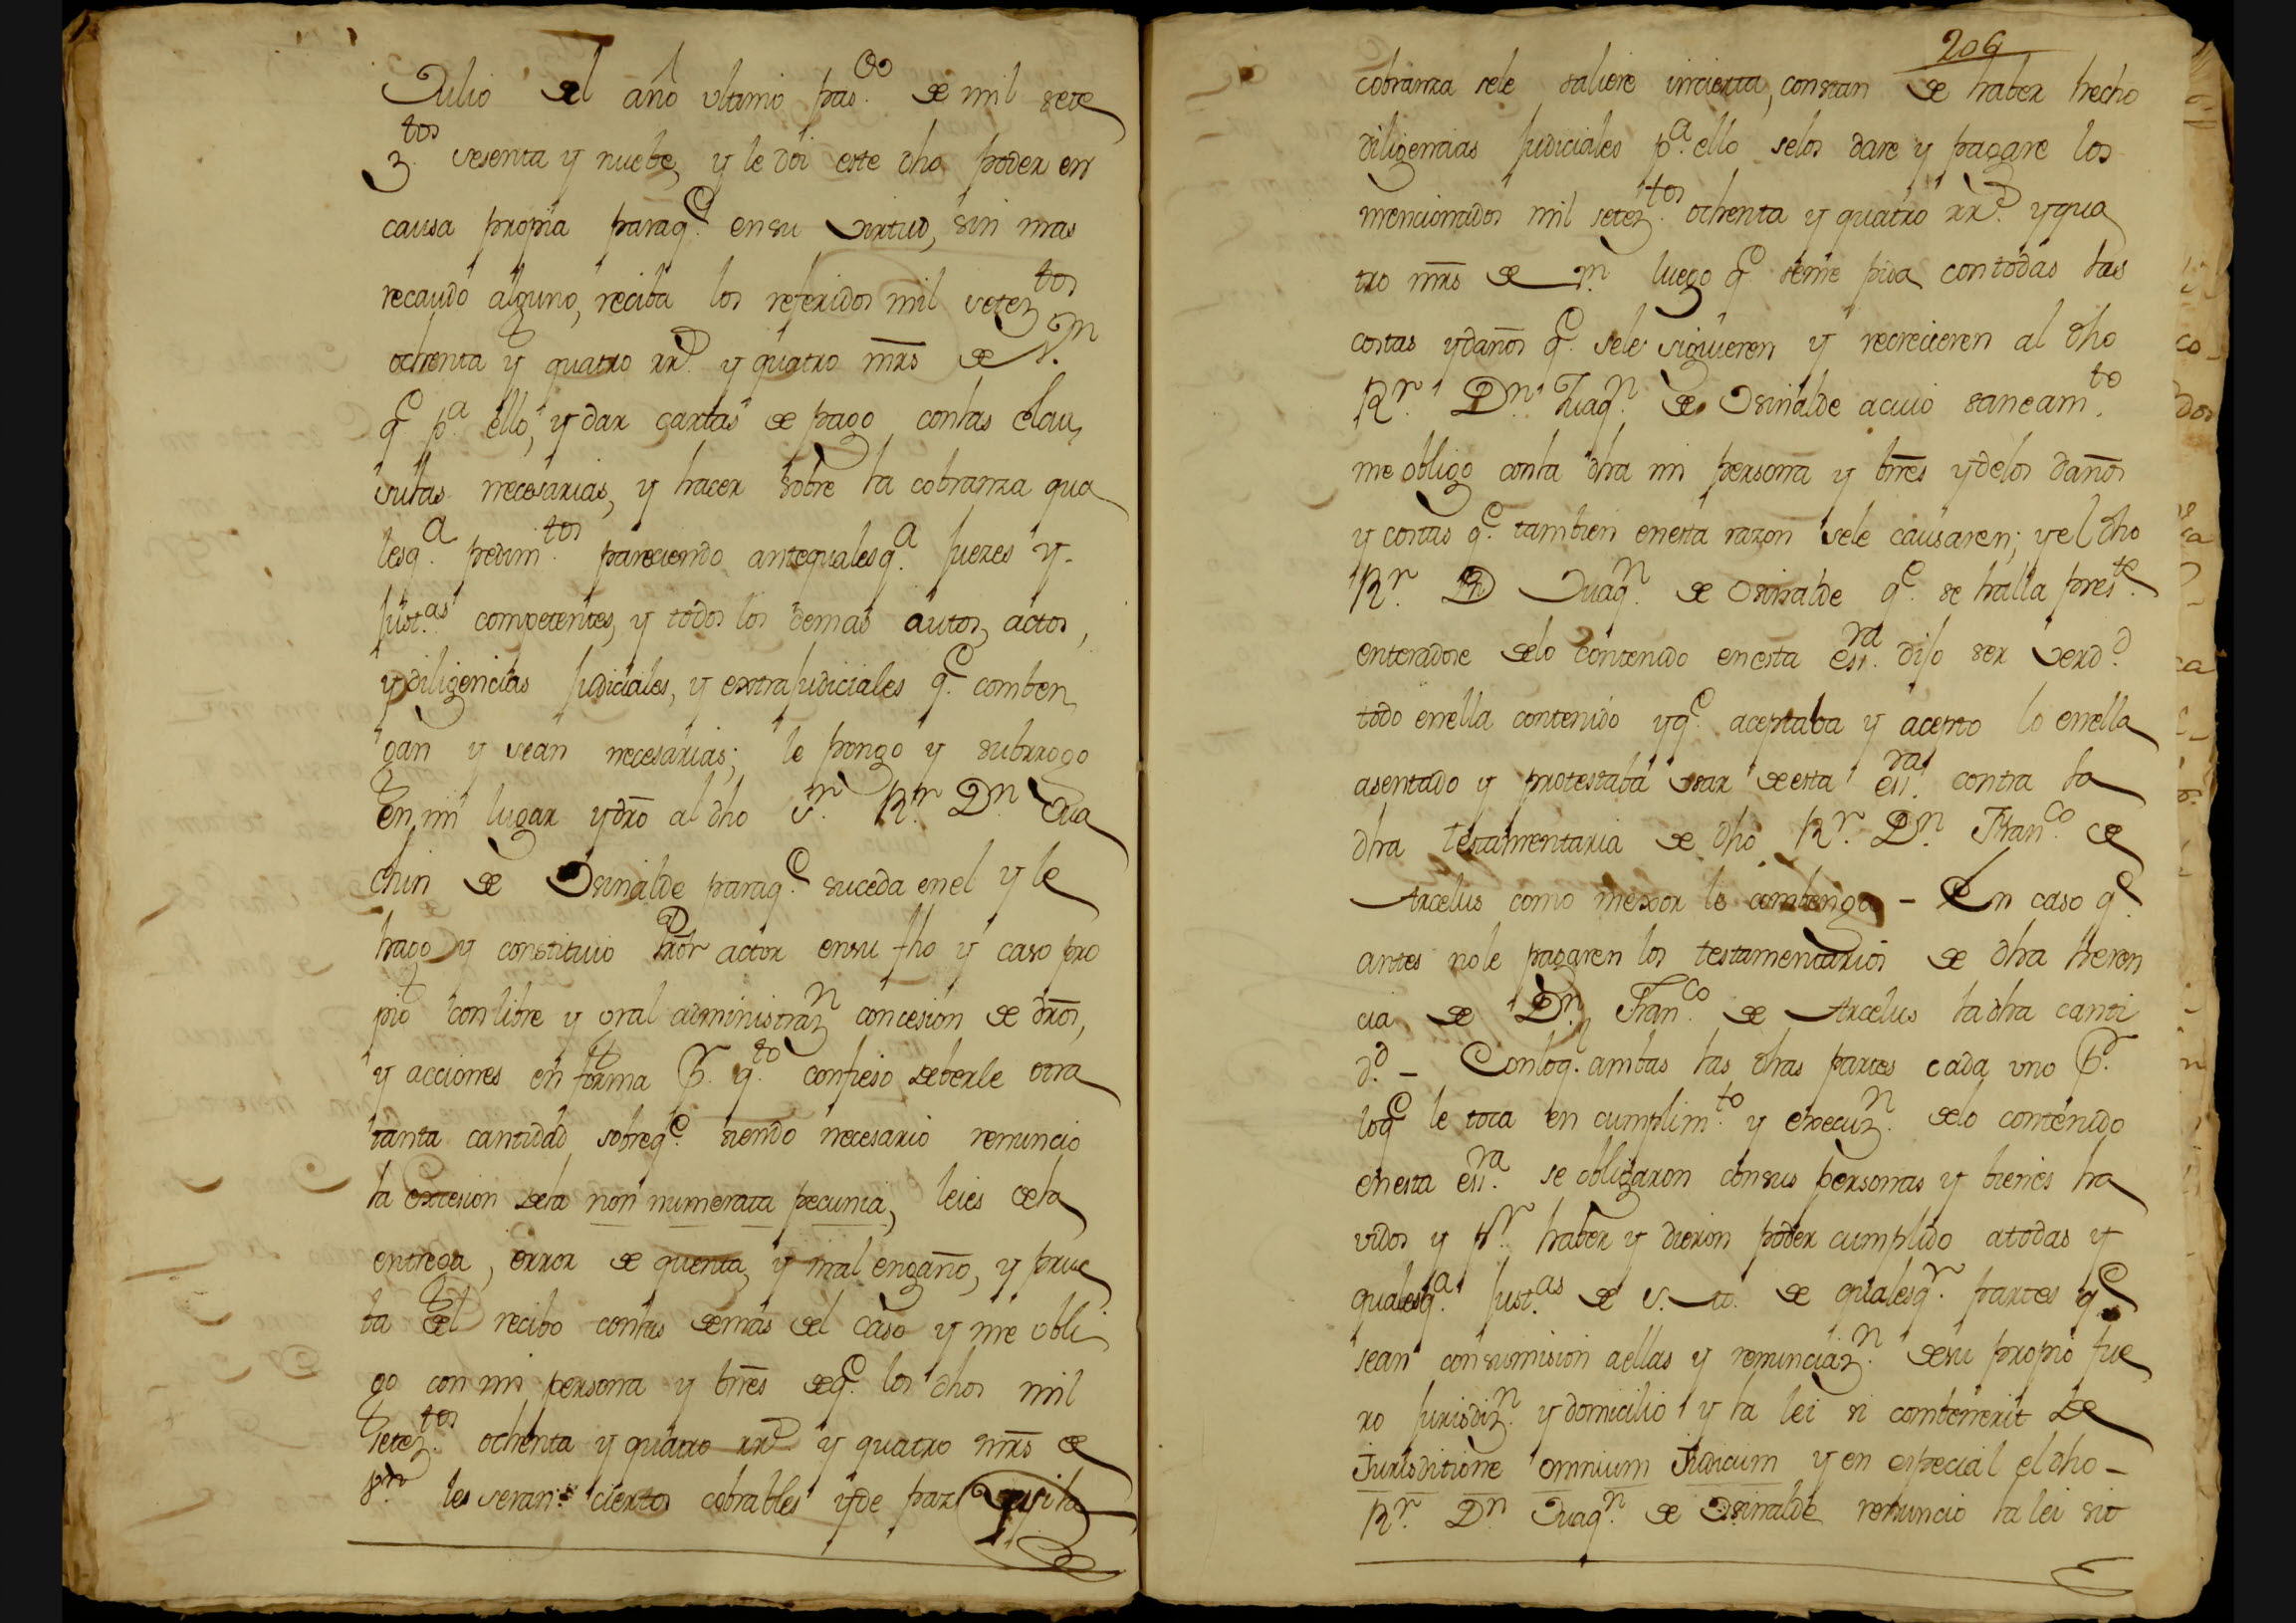 Julio del año ultimo pas.do de mil sete
z.tos sesenta y nuebe, y le doi este dho poder en
causa propia paraq.e ensu virtud, sin mas
recaudo alguno, reciba los referidos mil setez.tos
ochenta y quatro rr.s y quatro mrs de v.n
q.e p.a ello, y dar cartas de pago conlas clau
sulas necesarias, y hacer sobre la cobranza qua
lesq.a pedim.tos pareciendo antequalesq.a juezes y
just.as competentes, y todos los demas autos, actos,
y diligencias judiciales, y extrajudiciales q.e comben
gan y sean necesarias; le pongo y subrrogo
en mi lugar y dro al dho S.r R.r D.n Jua
chin de Osinalde paraq.e suceda enel y le
hago y constituio Pror actor ensu fho y caso pro
pio conlibre y gral administraz.n concesion de dros,
y acciones en forma P. q.to confieso deberle otra
tanta cantidad, sobreq.e siendo necesario renuncio
la excesion dela non numerata pecunia, leies dela
entrega, error de quenta, y mal engaño, y prue
ba del recibo conlas demas del caso y me obli
go con mi persona y bnes deq.e los dhos mil
setez.tos ochenta y quatro rr.s y quatro mrs de
v.n les seran ciertos cobrables y de paz, y si la
206
cobranza sele saliere incierta, constan de haber hecho
diligencias judiciales p.a ello selos dare y pagare los
mencionados mil setez.tos ochenta y quatro rr.s y qua
tro mrs de v.n luego q.e seme pida contodas las
costas y daños q.e sele siguieren y recrecieren al dho
R.r D.n Juaq.n de Osinalde acuio saneam.to
me obligo conla dha mi persona y bnes y delos daños
y costas q.e tambien enesta razon sele causaren; y el dho
R.r D Juaq.n de Osinalde q.e se halla pres.te
enteradose delo contenido enesta ess.ra dijo ser verd.d
todo enella contenido y q.e aceptaba y acepto lo enella
asentado y protestaba usar de esta ess.ra contra la
dha testamentaria de dho R.r D.n Fran.co de
Arcelus como mexor le combenga - En caso q.e
antes nole pagaren los testamentarios de dha heren
cia de D.n Fran.co de Arcelus la dha canti
d.d - Conloq. ambas las dhas partes cada uno P.r
loq.e le toca en cumplim.to y execuz.n delo contenido
enesta ess.ra se obligaron consus personas y bienes ha
vidos y p.r haber y dieron poder cumplido a todas y
qualesq.a just.as de S. M. de qualesq.r partes q.e
sean consumision aellas y renunciaz.n desu propio fue
ro jurisdiz.n y domicilio y la lei si combenerit de
Jurisditione omnium Judicum y en especial el dho -
R.r D.n Juaq.n de Osinalde renuncio la lei sit